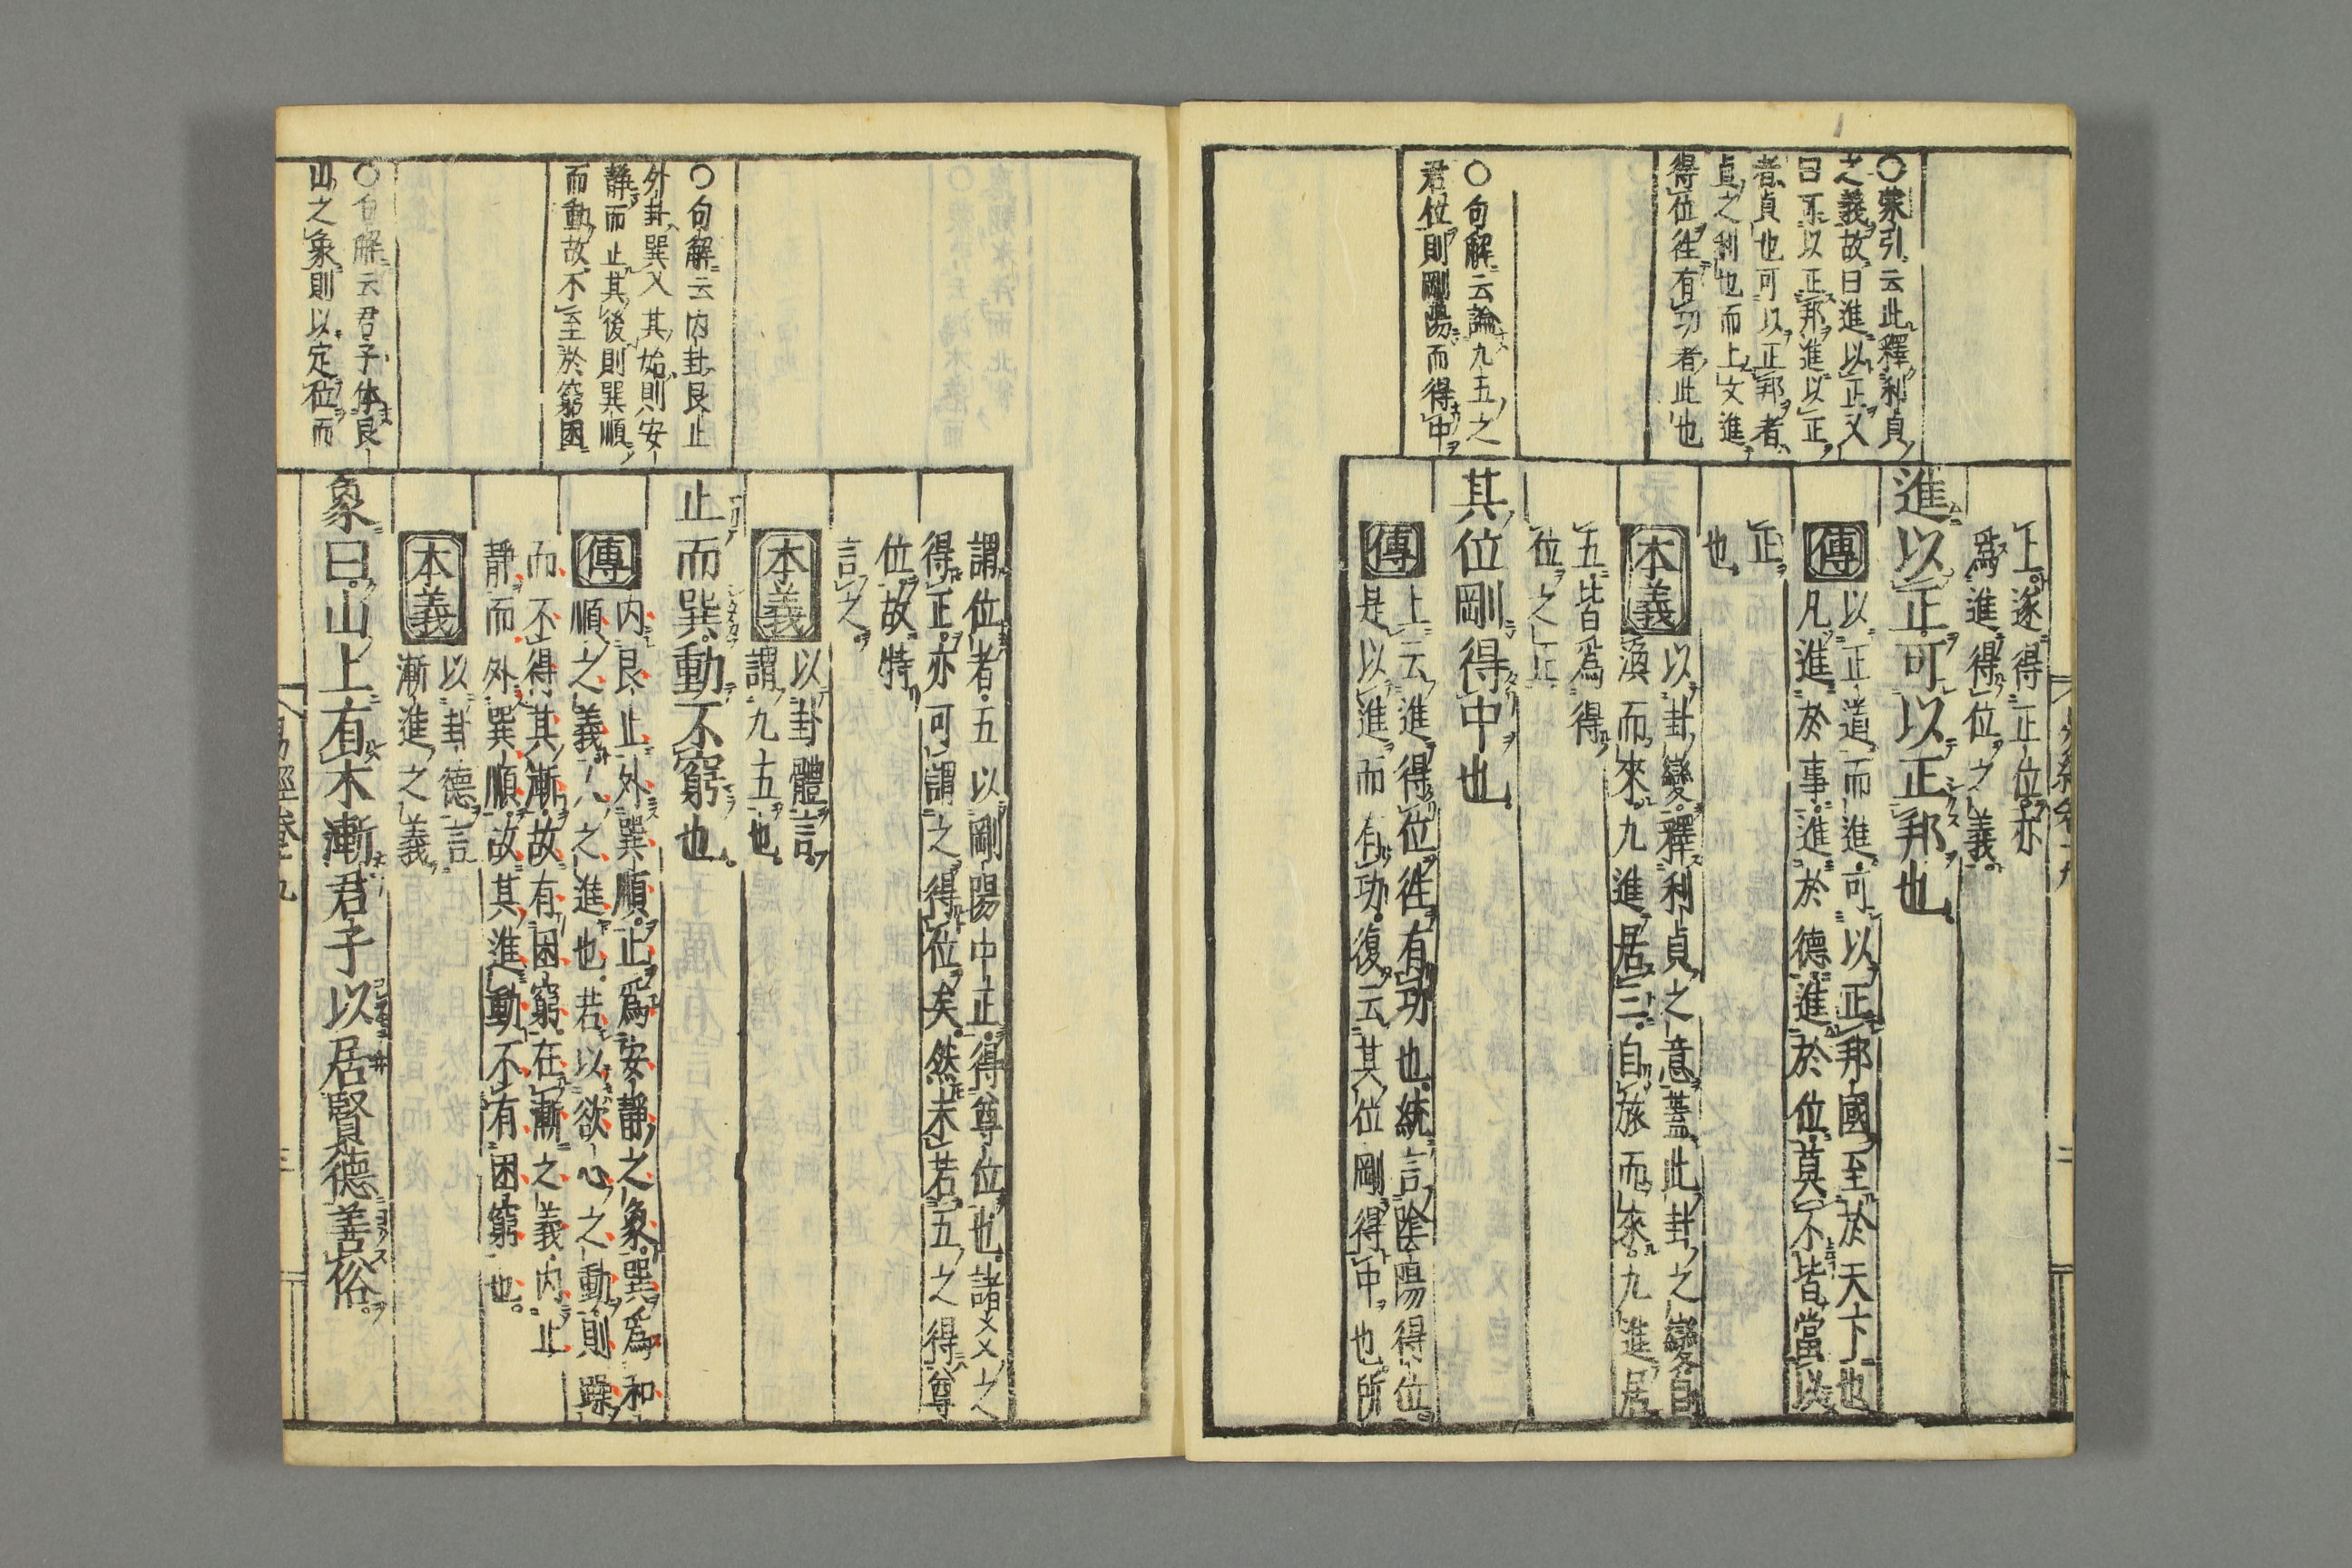 ○蒙引云此釋利貞
之義故曰進以正又
曰可以正邦進以正
者貞也可以正邦者
貞之利也而上文進
得位徃有功者此也
○句解云論九五之
君位則剛陽而得中
上遂得正位亦
爲進得位之義
進以正可以正邦也
傳
以正道而進可以正邦國至於天下也
凡進於事進於德進於位莫不皆當以
正
也
本義
以卦變釋利貞之意蓋此卦之變自
渙而來九進居三自旅而來九進居
五皆爲得
位之正
其位剛得中也
傳
上云進得位徃有功也統言陰陽得位
是以進而有功復云其位剛得中也所
○句解云内卦艮止
外卦巽入其始則安
靜而止其後則巽順
而動故不至於窮困
○句解云君子体艮
山之象則以定位而
謂位者五以剛陽中正得尊位也諸爻之
得正亦可謂之得位矣然未若五之得尊
位故特
言之
本義
以卦體言
謂九五也
止而巽動不窮也
傳
内艮止外巽順止爲安靜之象巽爲和
順之義人之進也若以欲心之動則躁
而不得其漸故有困窮在漸之義内止
靜而外巽順故其進動不有困窮也
本義
以卦德言
漸進之義
象曰山上有木漸君子以居賢德善俗